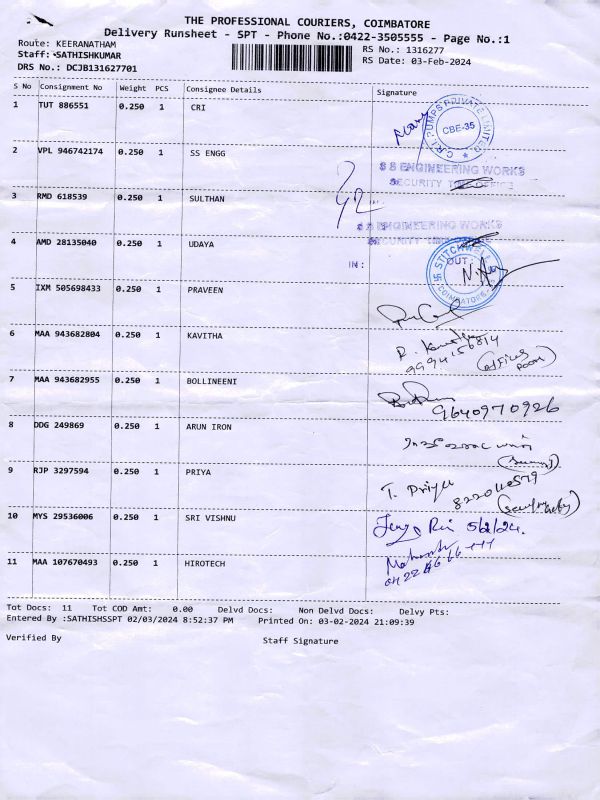 THE PROFESSIONAL COURIERS, COIMBATORE
Delivery Runsheet - SPT - Phone No.:0422-3505555 - Page No.:1
Route: KEERANATHAM
RS No.: 1316277
Staff: SATHISHKUMAR
RS Date: 03-Feb-2024
DRS No.: DCJB131627701
S No Consignment No Weight PCS Consignee Details Signature
1 TUT 886551 0.250 1 CRI
C.R.I. PUMPS PRIVATE LIMITED
CBE-35
2 VPL 946742174 0.250 1 SS ENGG
S S ENGINEERING WORKS
SECURITY
3 RMD 618539 0.250 1 SULTHAN
S S ENGINEERING WORKS
SECURITY
4 AMD 28135040 0.250 1 UDAYA
IN : OUT
COIMBATORE
5 IXM 505698433 0.250 1 PRAVEEN
6 MAA 943682804 0.250 1 KAVITHA
9994156814
7 MAA 943682955 0.250 1 BOLLINEENI
9640970926
8 DDG 249869 0.250 1 ARUN IRON
9 RJP 3297594 0.250 1 PRIYA
T. Priya
10 MYS 29536006 0.250 1 SRI VISHNU
5/2/24.
11 MAA 107670493 0.250 1 HIROTECH
Tot Docs: 11 Tot COD Amt: 0.00 Delvd Docs: Non Delvd Docs: Delvy Pts:
Entered By :SATHISHSSPT 02/03/2024 8:52:37 PM Printed On: 03-02-2024 21:09:39
Verified By Staff Signature